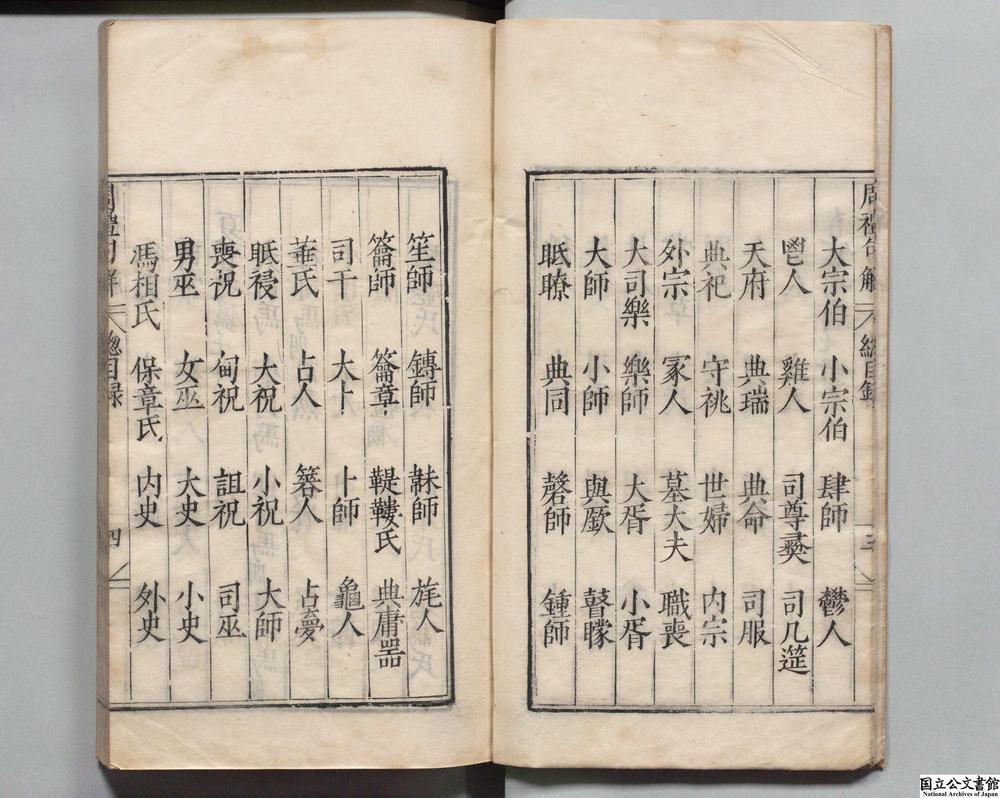 周禮句解 總目錄 三
大宗伯 小宗伯 肆師 鬱人
鬯人 雞人 司尊彝 司几筵
天府 典瑞 典命 司服
典祀 守祧 世婦 内宗
外宗 冢人 墓大夫 職喪
大司樂 樂師 大胥 小胥
大師 小師 與厫 瞽矇
眡瞭 典同 磬師 鍾師
笙師 鏄師 韎師 旄人
籥師 籥章 鞮鞻氏 典庸器
司干 大卜 卜師 龜人
菙氏 占人 簭人 占夢
眡祲 大祝 小祝 大師
喪祝 甸祝 詛祝 司巫
男巫 女巫 大史 小史
馮相氏 保章氏 内史 外史
周禮句解 總目錄 四
国立公文書館
National Archives of Japan